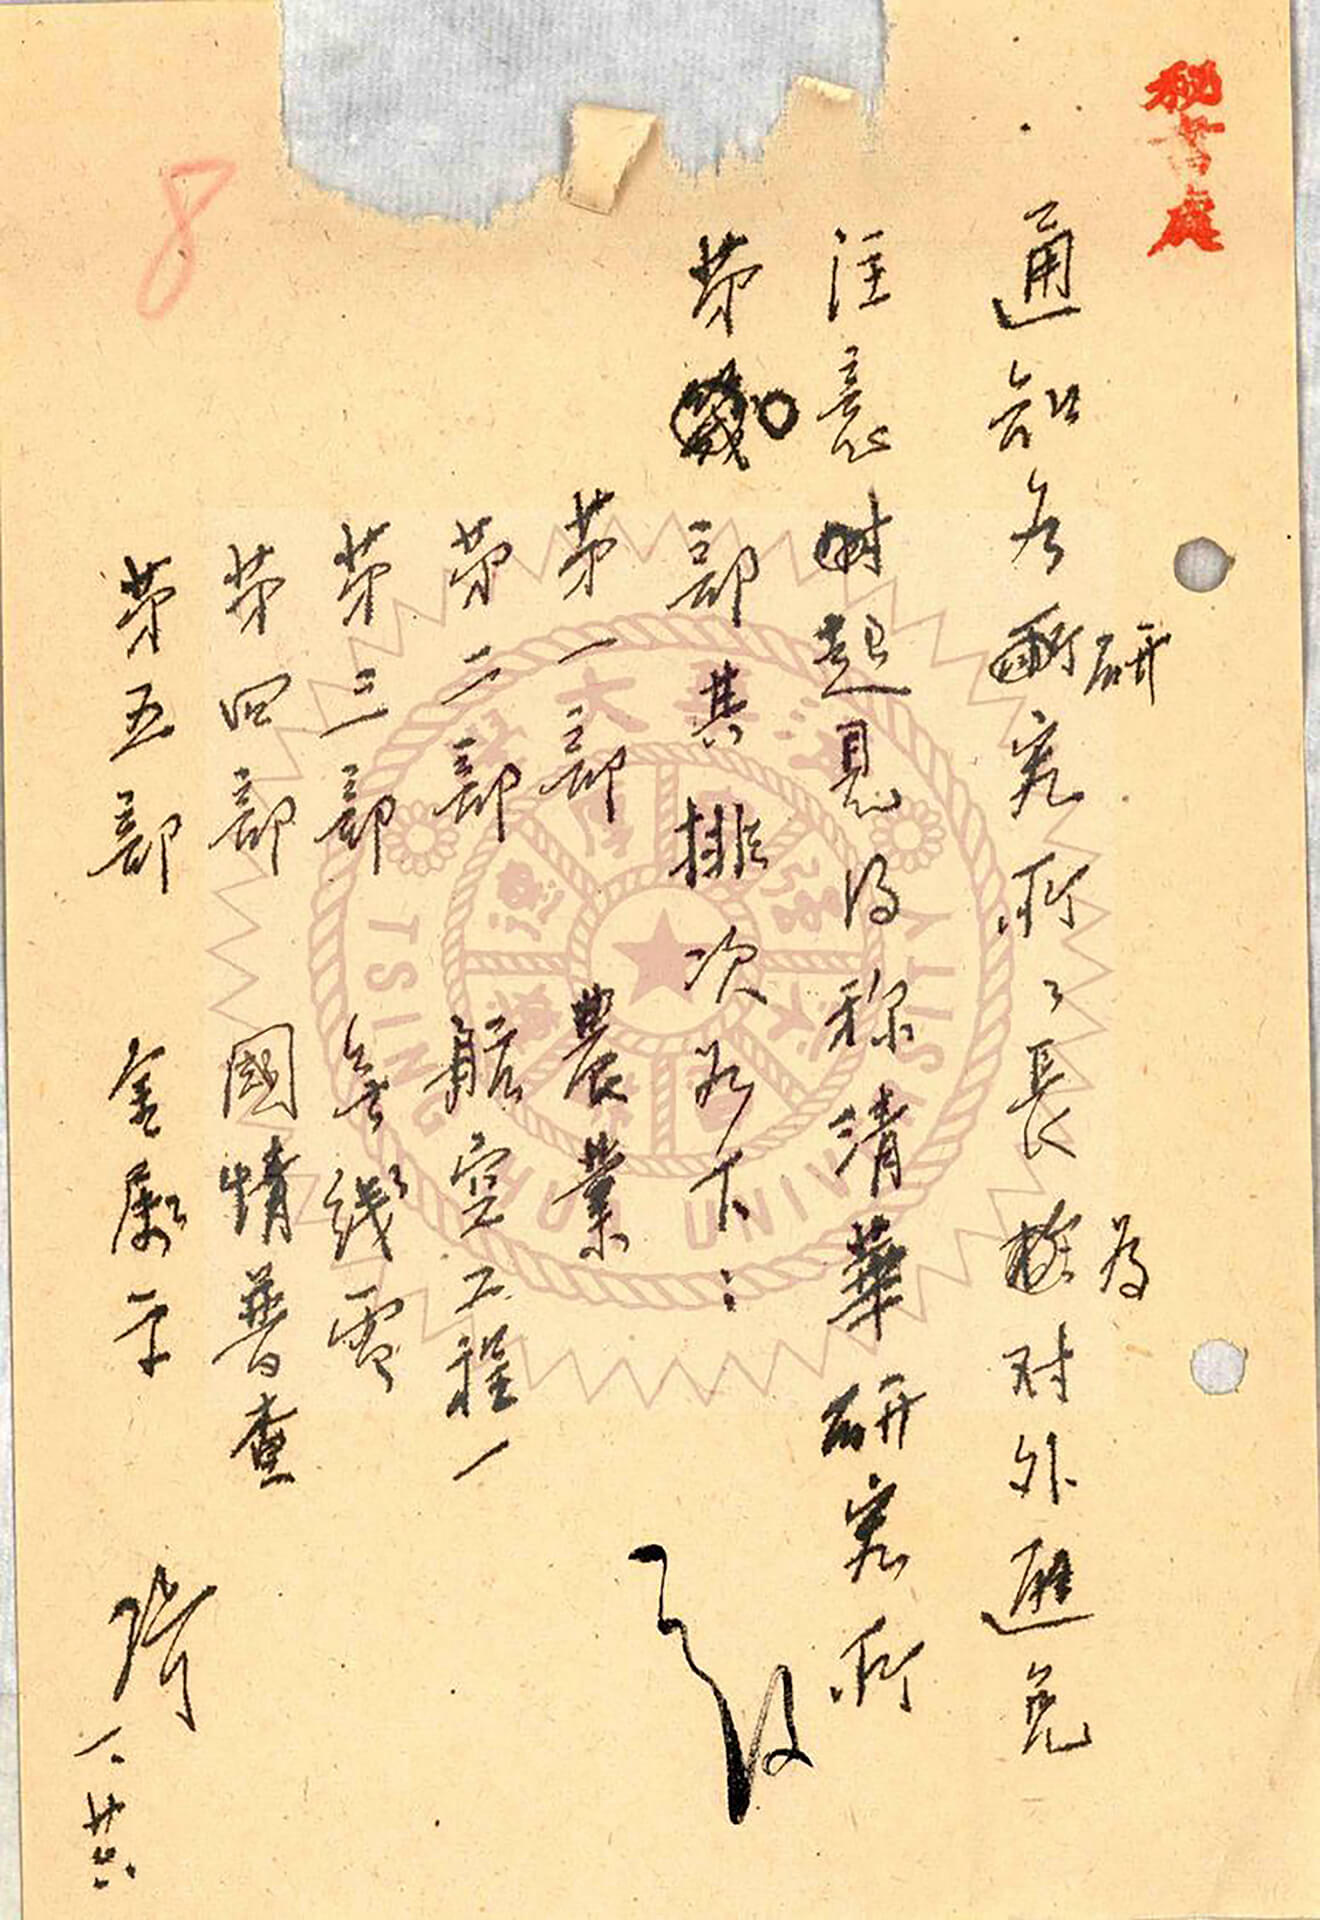 秘書處
通知各研究所所長為对外避免
注意起見改称清華研究所
第〇部其排次如下：
第一部 農業
第二部 航空工程
第三部 無綫電
第四部 國情普查
第五部 金屬学
琦
一、廿六、
8
TSING HUA UNIVERSITY